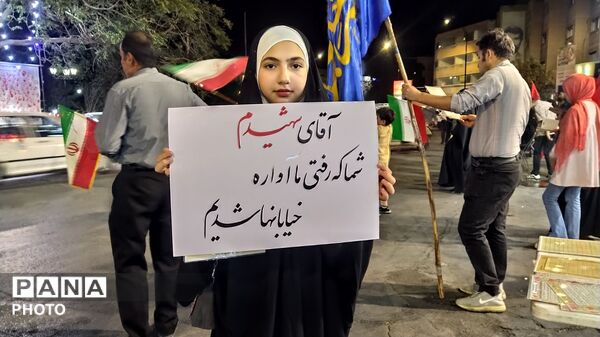 آقای شهیدم
شما که رفتی ما آواره
خیابانها شدیم
PANA
PHOTO